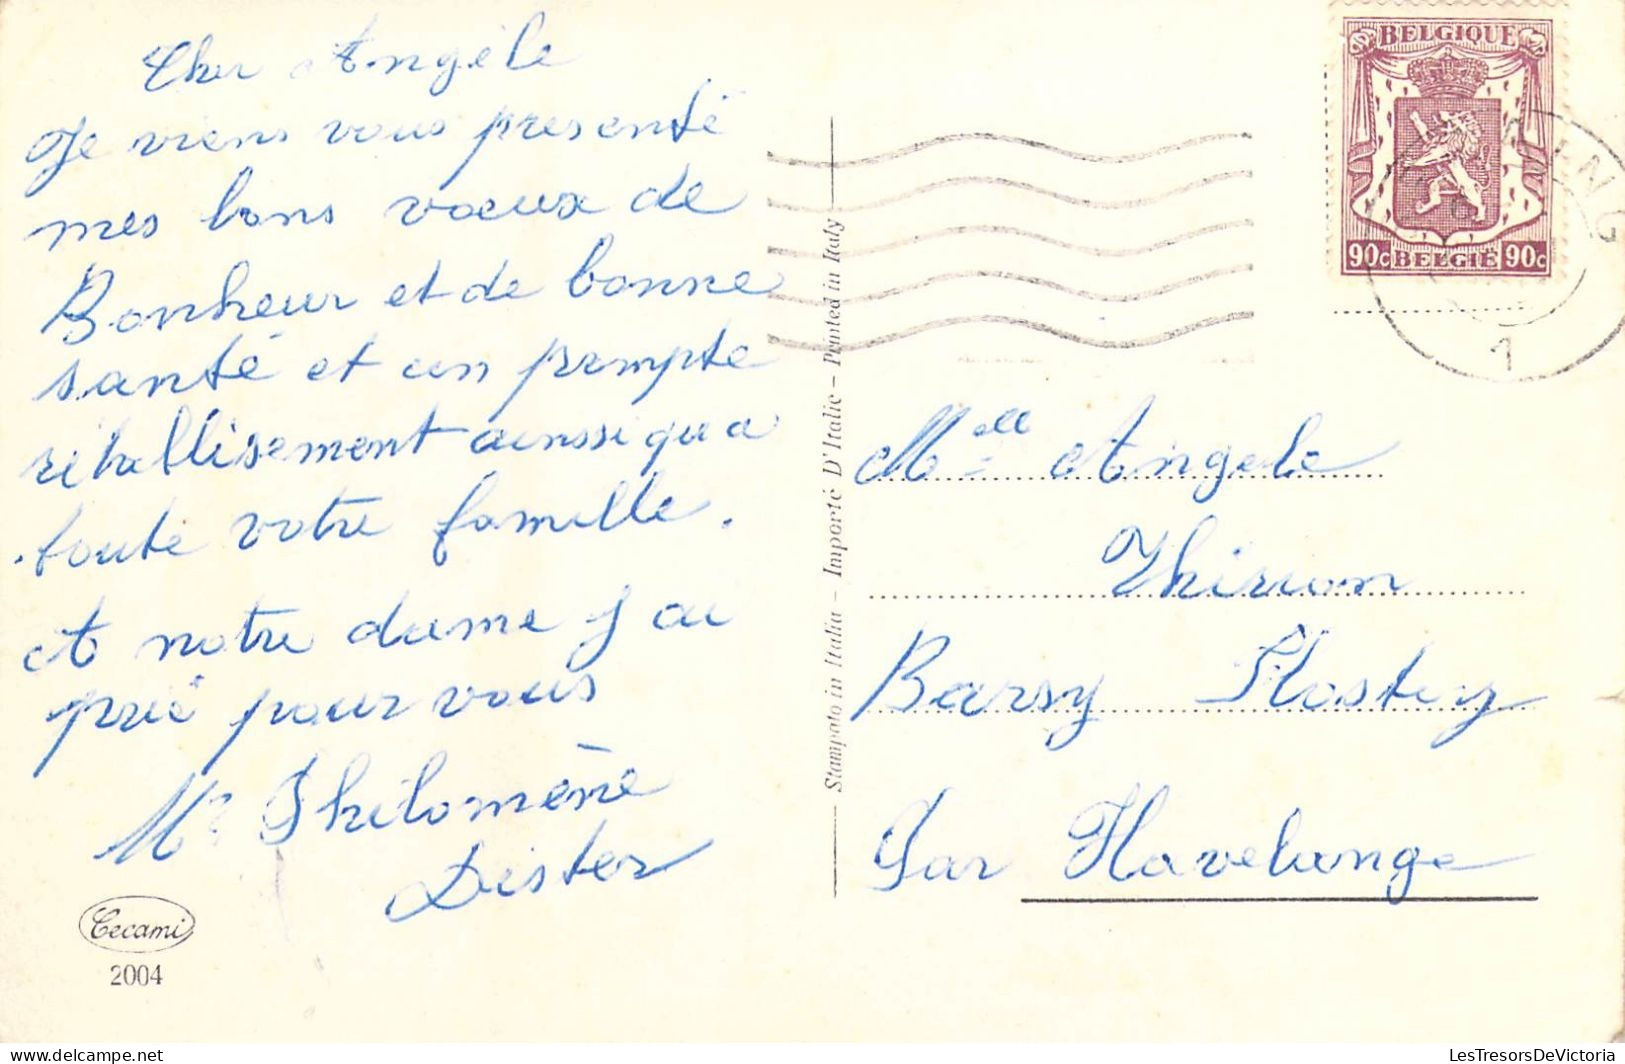 Cher Angèle
Je viens vous presenté
mes bons voeux de
Bonheur et de bonne
santé et un prompte
rétablisement ainssi qu a
toute votre famille.
A notre dame j ai
prié pour vous
Philomène
Dister
Cecami
2004
Stampato in Italia – Importé D'Italie – Printed in Italy
BELGIQUE
90c BELGIË 90c
1
Melle Angele
Thirion
Barsy Flostoy
Par Havelange
LesTresorsDeVictoria